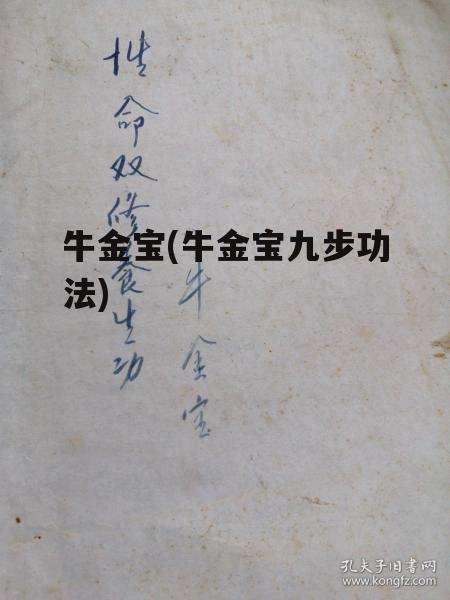 性命双修养生功
牛金宝
牛金宝(牛金宝九步功
法)
孔夫子旧書网
www.kongfz.com